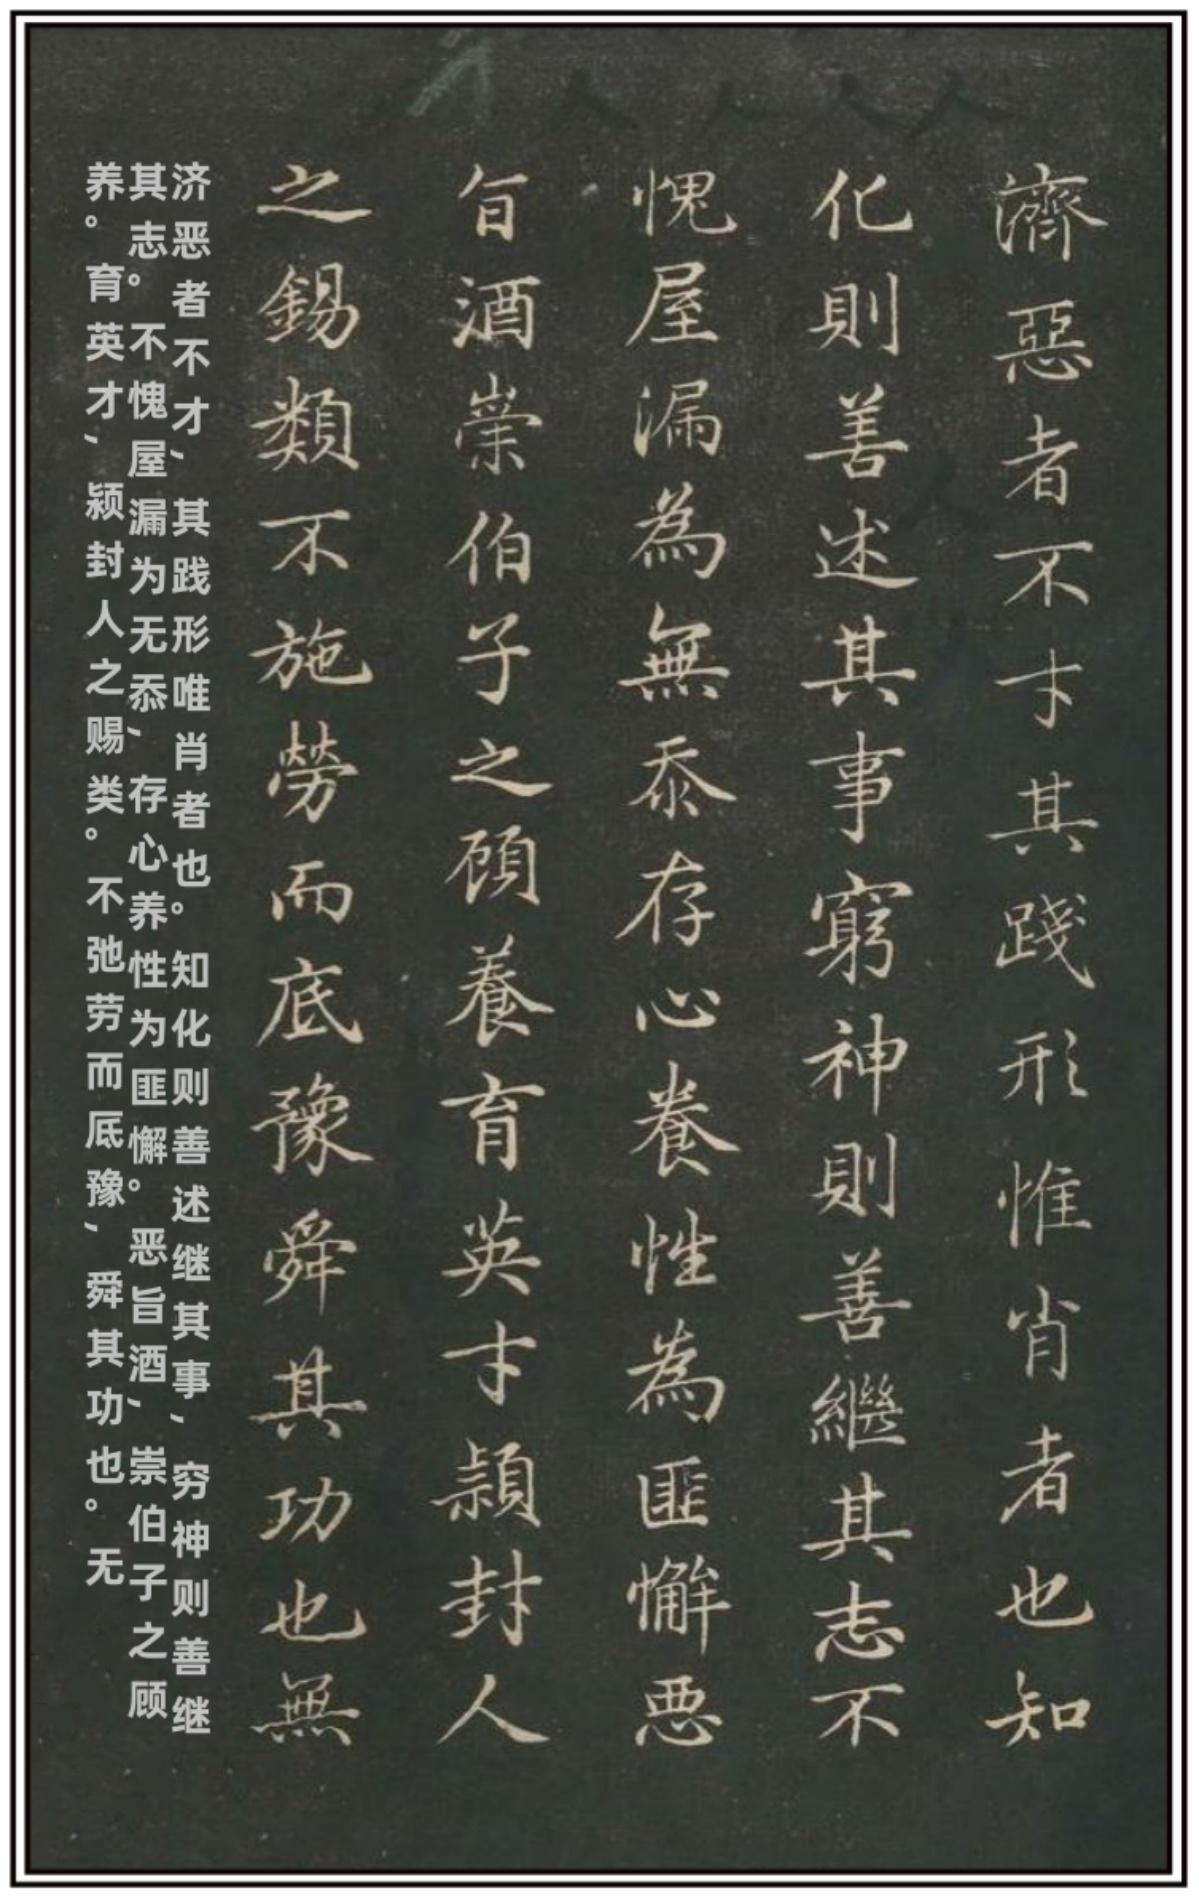 濟惡者不才其踐形惟肖者也知
化則善述其事窮神則善繼其志不
愧屋漏為無忝存心養性為匪懈惡
旨酒崇伯子之顧養育英才潁封人
之錫類不施勞而底豫舜其功也無
济恶者不才，其践形唯肖者也。知化则善述继其事，穷神则善继
其志。不愧屋漏为无忝，存心养性为匪懈。恶旨酒，崇伯子之顾
养。育英才，颍封人之赐类。不弛劳而厎豫，舜其功也。无